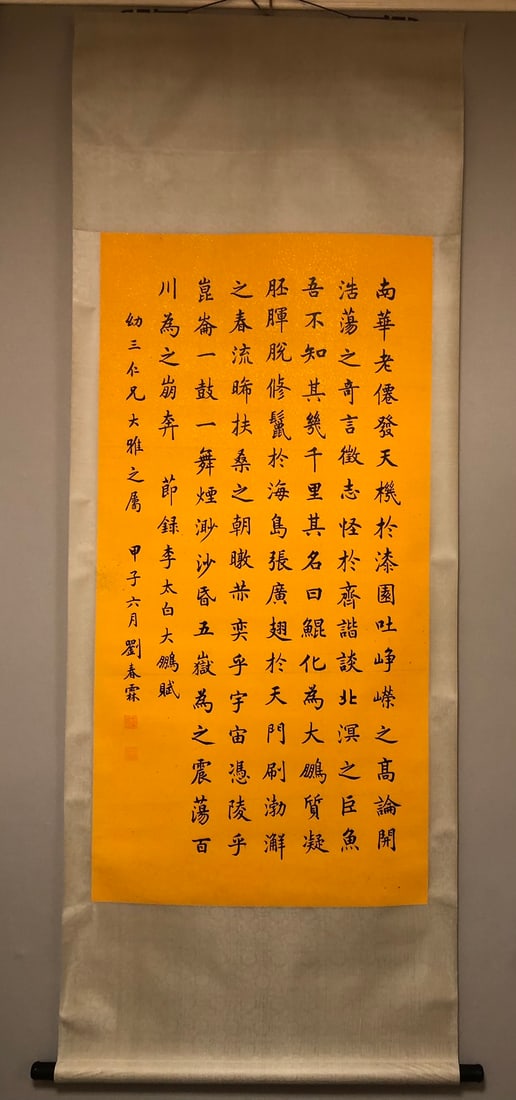 南華老僊發天機於漆園吐崢嶸之高論開
浩蕩之奇言徵志怪於齊諧談北溟之巨魚
吾不知其幾千里其名曰鯤化為大鵬質凝
胚暉脫修鬣於海島張廣翅於天門刷渤澥
之春流晞扶桑之朝暾烜奕乎宇宙憑陵乎
崑崙一鼓一舞煙渺沙昏五嶽為之震蕩百
川為之崩奔 節錄李太白大鵬賦
幼三仁兄大雅之屬 甲子六月劉春霖